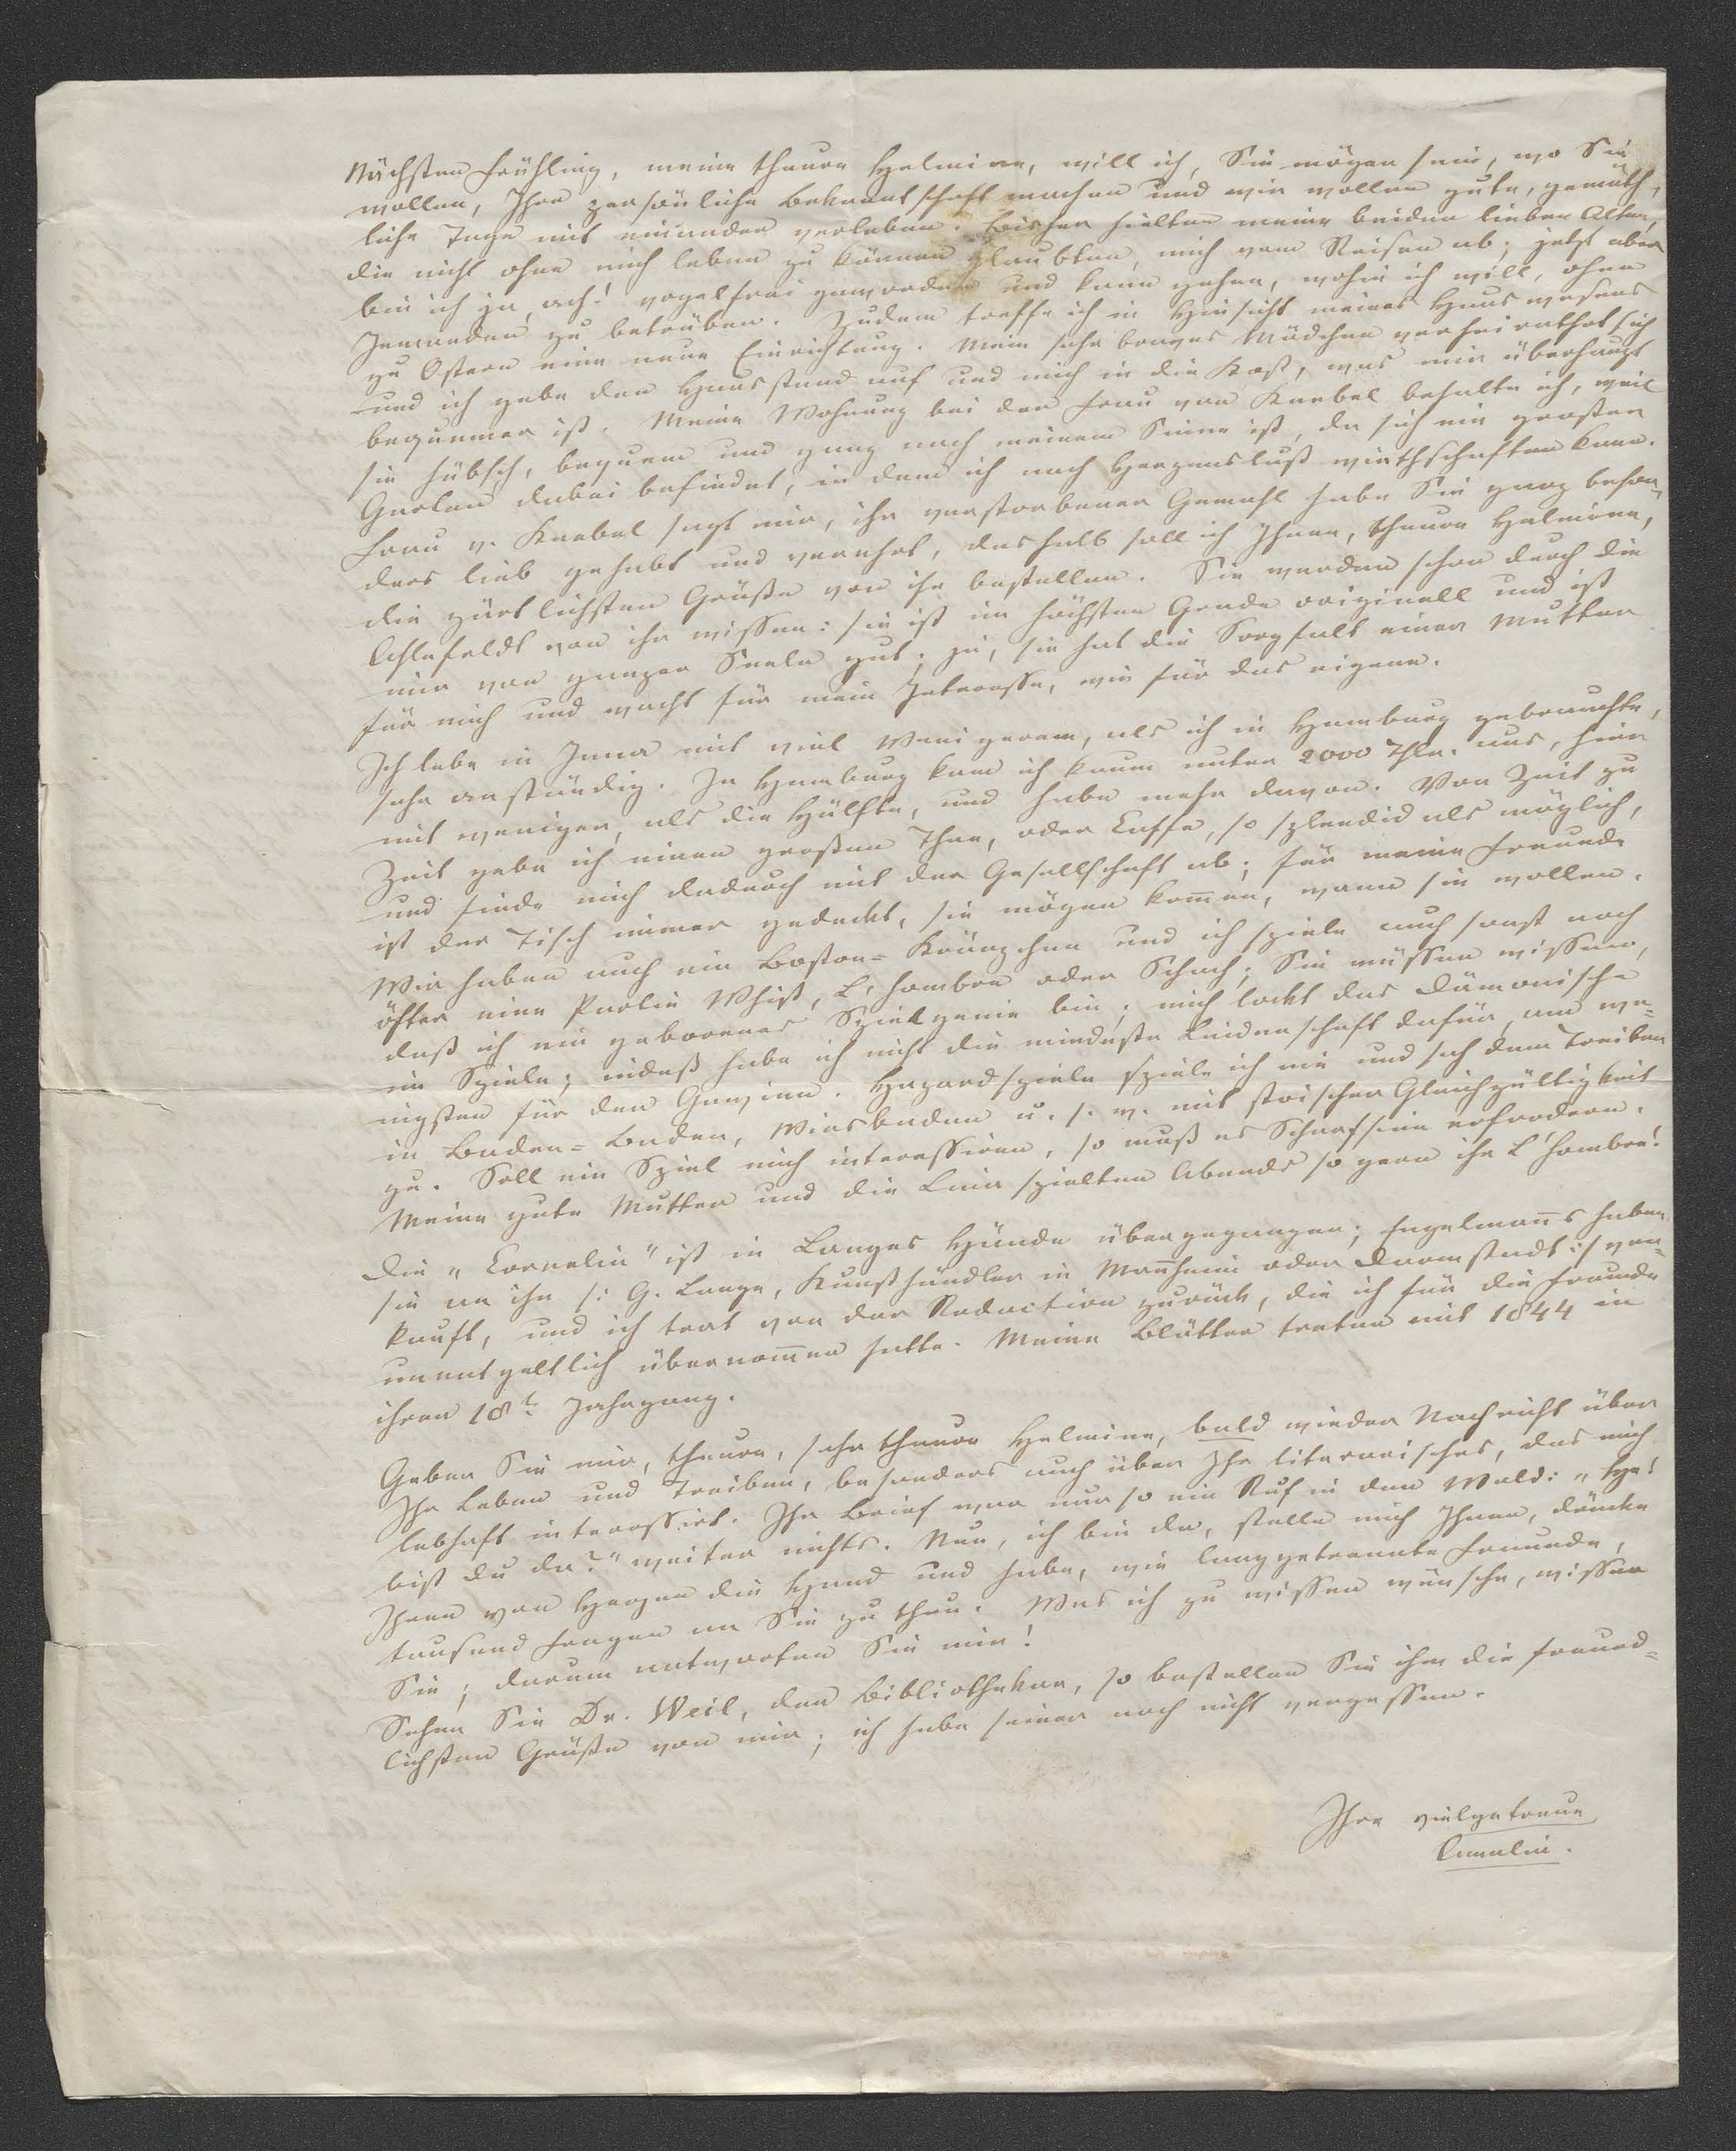 Nächsten Frühling, meine theure Helmina, will ich, Sie mögen sein, wo Sie
wollen, Ihre persönliche Bekanntschaft machen und wir wollen gute, gemüth,
liche Tage mit einander verleben. Bisher hielten meine beiden lieben Alten,
die nicht ohne mich leben zu können glaubten, mich vom Reisen ab; jetzt aber
bin ich ja, ach! vogelfrei geworden und kann gehen, wohin ich will, ohne
Jemanden zu betrüben. Zudem treffe ich in Hinsicht meines Hauswesens
zu Ostern eine neue Einrichtung. Mein sehr braves Mädchen verheirathet sich
und ich gebe den Hausstand auf und mich in die Kost, was mir überhaupt
bequemer ist. Meine Wohnung bei der Frau von Knebel behalte ich, weil
sie hübsch, bequem und ganz nach meinem Sinne ist, da sich ein großer
Garten dabei befindet, in dem ich nach Herzenslust wirthschaften kann.
Frau v. Knebel sagt mir, ihr verstorbener Gemahl habe Sie ganz beson,
ders lieb gehabt und verehrt, deshalb soll ich Ihnen, theure Helmina,
die zärtlichsten Grüße von ihr bestellen. Sie werden schon durch die
Ahlefeldt von ihr wissen: sie ist im höchsten Grade originell und ist
mir von ganzer Seele gut; ja, sie hat die Sorgfalt einer Mutter
für mich und wacht für mein Interesse, wie für das eigene.
Ich lebe in Jena mit viel Wenigerem, als ich in Hamburg gebrauchte,
sehr anständig. In Hamburg kam ich kaum unter 2000 Thlr. aus, hier
mit weniger, als die Hälfte, und habe mehr davon. Von Zeit zu
Zeit gebe ich einen großen Thee, oder Caffe, so splendid als möglich,
und finde mich dadurch mit der Gesellschaft ab; für meine Freunde
ist der Tisch immer gedeckt, sie mögen kom̄en, wann sie wollen.
Wir haben auch ein Boston-Kränzchen und ich spiele auch sonst noch
öfter eine Partie Whist, L'hombre oder Schach; Sie müssen wissen,
daß ich ein geborenes Spielgenie bin; mich lockt das Dämonische
im Spiele; indeß habe ich nicht die mindeste Leidenschaft dafür, am we-
nigsten für den Gewinn. Hazardspiele spiele ich nie und sah dem Treiben
in Baden-Baden, Wiesbaden u. s. w. mit stoischer Gleichgültigkeit
zu. Soll ein Spiel mich interessiren, so muß es Scharfsinn erfordern.
Meine gute Mutter und die Lina spielten Abends so gern ihr L'hombre!
Die „Cornelia" ist in Langes Hände übergegangen; Engelman̄s haben
sie an ihn /: G. Lange, Kunsthändler in Man̄heim oder Darmstadt :/ ver-
kauft, und ich trat von der Redaction zurück, die ich für die Freunde
unentgeltlich übernom̄en hatte. Meine Blätter treten mit 1844 in
ihren 18t. Jahrgang.
Geben Sie mir, theure, sehr theure Helmina, bald wieder Nachricht über
Ihr Leben und Treiben, besonders auch über Ihr literarisches, das mich
lebhaft interessirt. Ihr Brief war nur so ein Ruf in den Wald: „He!
bist du da?" weiter nichts. Nun, ich bin da, stelle mich Ihnen, drücke
Ihnen von Herzen die Hand und habe, wie langgetrennte Freunde,
tausend Fragen an Sie zu thun. Was ich zu wissen wünsche, wissen
Sie; darum antworten Sie mir!
Sehen Sie Dr. Weil, den Bibliothekar, so bestellen Sie ihm die freund-
lichsten Grüße von mir; ich habe seiner noch nicht vergessen.
Ihre vielgetreue
Amalia.